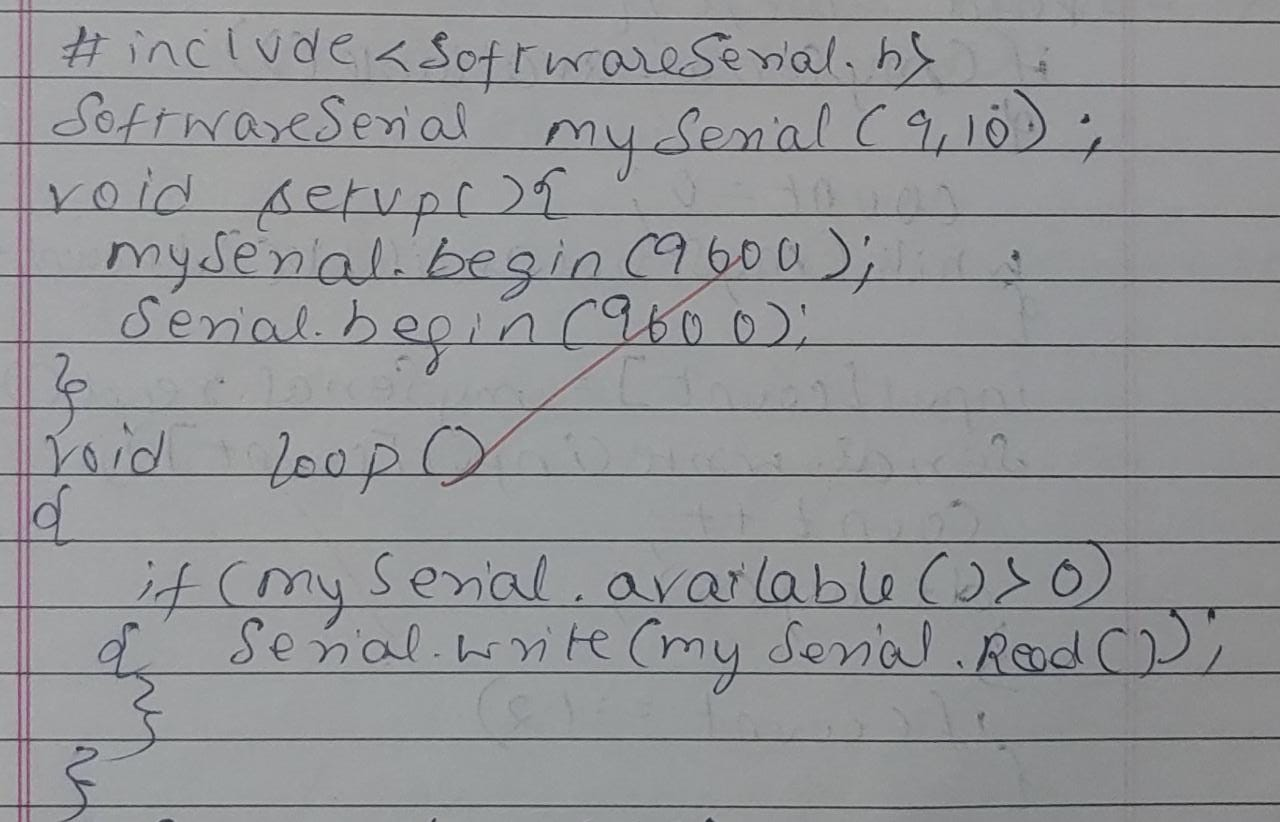 #include <SoftwareSerial.h>
SoftwareSerial mySerial (9,10);
void setup(){
mySerial.begin(9600);
Serial.begin(9600);
}
void loop()
{
if(mySerial.available()>0)
{ Serial.write(mySerial.Read());
}
}